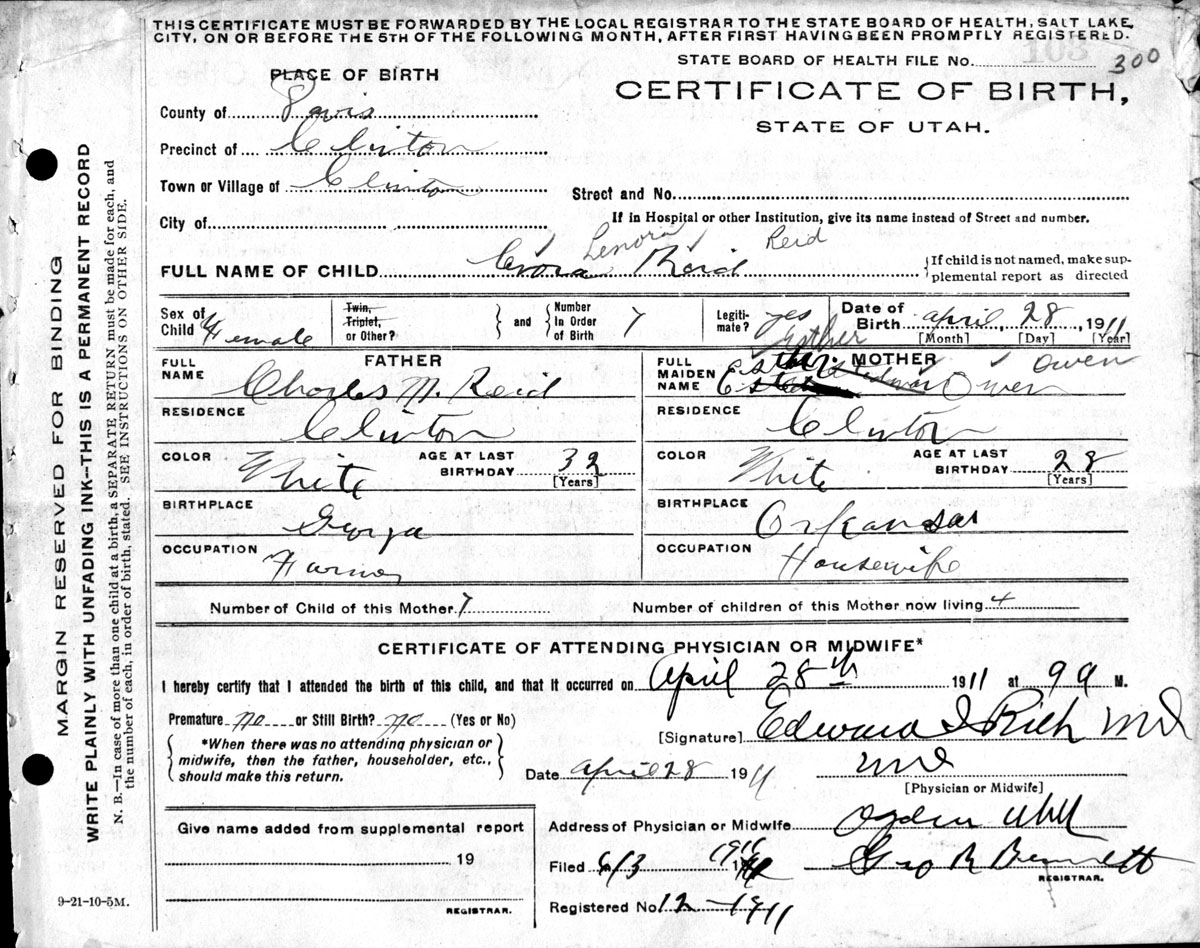 THIS CERTIFICATE MUST BE FORWARDED BY THE LOCAL REGISTRAR TO THE STATE BOARD OF HEALTH, SALT LAKE
CITY, ON OR BEFORE THE 5TH OF THE FOLLOWING MONTH, AFTER FIRST HAVING BEEN PROMPTLY REGISTERED.
STATE BOARD OF HEALTH FILE No. 103 300
PLACE OF BIRTH
CERTIFICATE OF BIRTH,
STATE OF UTAH.
County of Davis
Precinct of Clinton
Town or Village of Clinton
Street and No.
City of
If in Hospital or other Institution, give its name instead of Street and number.
Lenora Reid
FULL NAME OF CHILD Reid
{If child is not named, make sup-
plemental report as directed
Sex of Child Female
Twin, Triplet, or Other?
and
Number In Order of Birth 7
Legiti-mate? yes
Date of Birth April, 28, 1911
[Month] [Day] [Year]
FATHER
FULL NAME Charles M. Reid
RESIDENCE Clinton
COLOR White
AGE AT LAST BIRTHDAY 32
[Years]
BIRTHPLACE Gorga
OCCUPATION Farmer
MOTHER
Esther Owen
FULL MAIDEN NAME Esther Owen
RESIDENCE Clinton
COLOR White
AGE AT LAST BIRTHDAY 28
[Years]
BIRTHPLACE Orkansas
OCCUPATION Housewife
Number of Child of this Mother 7 Number of children of this Mother now living 4
CERTIFICATE OF ATTENDING PHYSICIAN OR MIDWIFE*
I hereby certify that I attended the birth of this child, and that it occurred on April 28th 1911 at 9 a M.
Premature no or Still Birth? no (Yes or No)
[Signature] Edward I Rich MD
*When there was no attending physician or
midwife, then the father, householder, etc.,
should make this return.
Date April 28 1911
MD
[Physician or Midwife]
Give name added from supplemental report
19
REGISTRAR.
Address of Physician or Midwife Ogden Utah
Filed 6/3 Geo R Bennett
REGISTRAR.
Registered No. 12 - 1911
9-21-10-5M.
MARGIN RESERVED FOR BINDING
WRITE PLAINLY WITH UNFADING INK--THIS IS A PERMANENT RECORD
N. B.—In case of more than one child at a birth, a SEPARATE RETURN must be made for each, and
the number of each, in order of birth, stated. SEE INSTRUCTIONS ON OTHER SIDE.